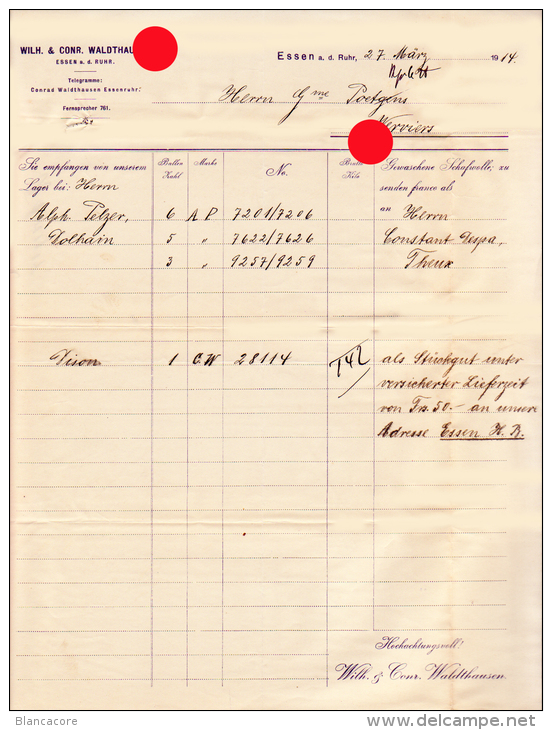 WILH. & CONR. WALDTHAU
ESSEN a. d. RUHR.
Telegramme:
Conrad Waldthausen Essenruhr.
Fernsprecher 761.
Essen a. d. Ruhr, 27. März 1914.
Herrn Gme Poetgens
Verviers
Sie empfangen von unserem Lager bei: Herrn
Ballen Zahl Marke No. Brutto Kilo
Gewaschene Schafwolle, zu senden franco als
an Herrn
Alph. Pelzer, 6 A P 7201/7206
Dolhain 5 " 7622/7626 Constant Despa,
3 " 9257/9259 Theux
Dison 1 C.W 28114 142 als Stückgut unter
versicherter Lieferzeit
von Frs. 50.- an unsere
Adresse Essen H. B.
Hochachtungsvoll!
Wilh. & Conr. Waldthausen.
Blancacore
www.delcampe.net